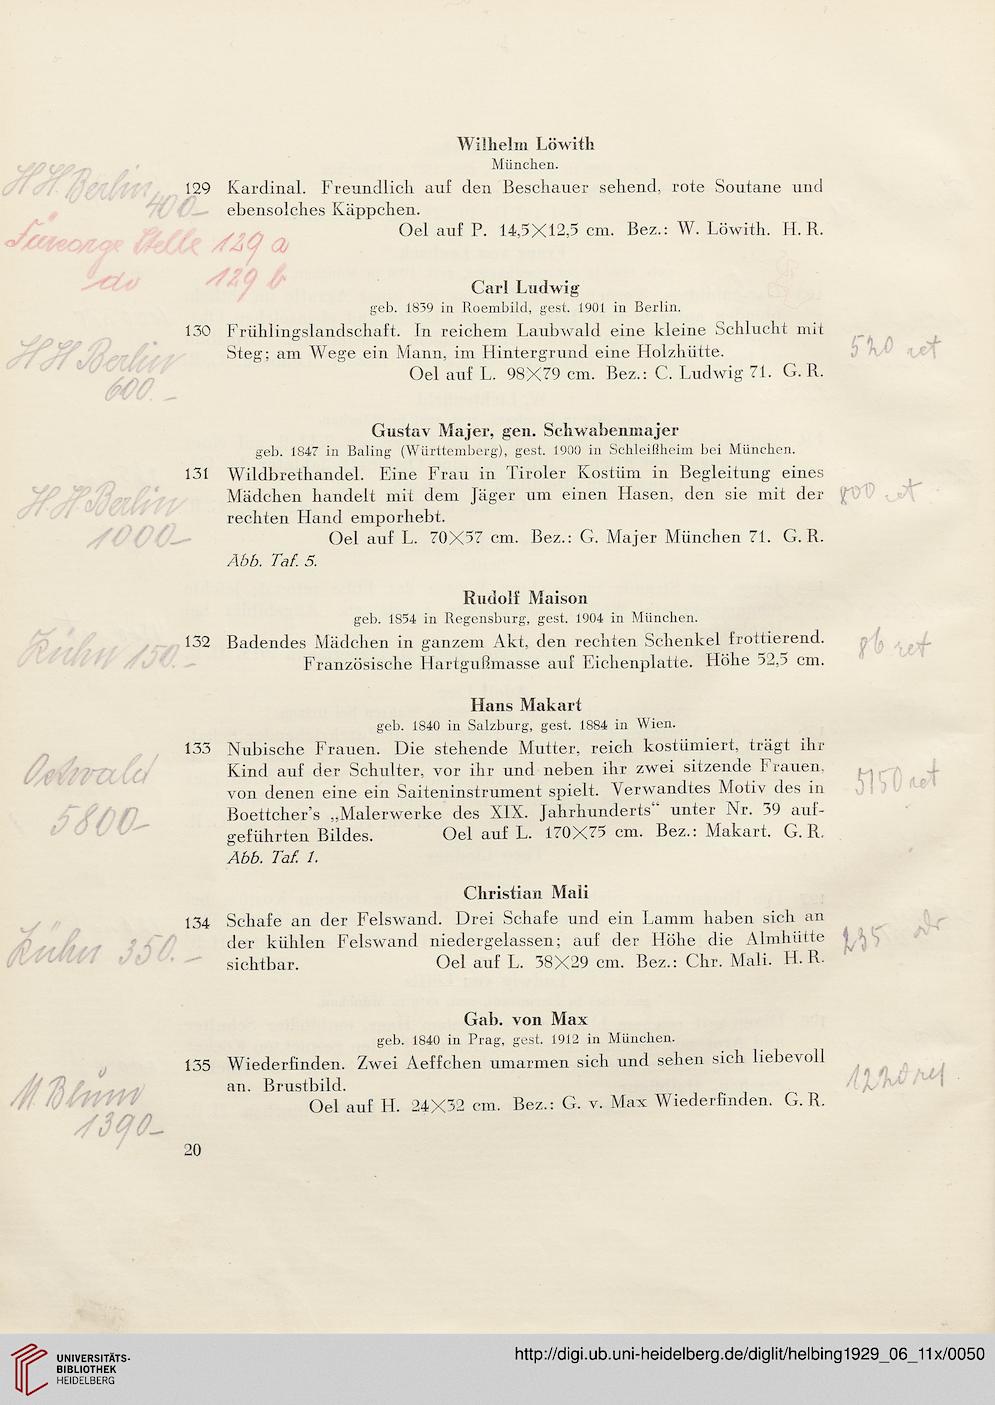 Wilhelm Löwith
München.
H H. Berlin
400.–
129 Kardinal. Freundlich auf den Beschauer sehend, rote Soutane und
ebensolches Käppchen.
Oel auf P. 14,5×12,5 cm. Bez.: W. Löwith. H. R.
Fürsorge Stelle 129 a
do 129 b
Carl Ludwig
geb. 1839 in Roembild, gest. 1901 in Berlin.
130 Frühlingslandschaft. In reichem Laubwald eine kleine Schlucht mit
Steg; am Wege ein Mann, im Hintergrund eine Holzhütte.
Oel auf L. 98×79 cm. Bez.: C. Ludwig 71. G. R.
H H Berlin
600.–
520 ret
Gustav Majer, gen. Schwabenmajer
geb. 1847 in Baling (Württemberg), gest. 1900 in Schleißheim bei München.
131 Wildbrethandel. Eine Frau in Tiroler Kostüm in Begleitung eines
Mädchen handelt mit dem Jäger um einen Hasen, den sie mit der
rechten Hand emporhebt.
Oel auf L. 70×57 cm. Bez.: G. Majer München 71. G. R.
Abb. Taf. 5.
H. H. Berlin
1000.–
800 ret
Rudolf Maison
geb. 1854 in Regensburg, gest. 1904 in München.
132 Badendes Mädchen in ganzem Akt, den rechten Schenkel frottierend.
Französische Hartgußmasse auf Eichenplatte. Höhe 52,5 cm.
Kühn 150.–
86 ret
Hans Makart
geb. 1840 in Salzburg, gest. 1884 in Wien.
133 Nubische Frauen. Die stehende Mutter, reich kostümiert, trägt ihr
Kind auf der Schulter, vor ihr und neben ihr zwei sitzende Frauen,
von denen eine ein Saiteninstrument spielt. Verwandtes Motiv des in
Boettcher's „Malerwerke des XIX. Jahrhunderts“ unter Nr. 39 auf-
geführten Bildes. Oel auf L. 170×75 cm. Bez.: Makart. G. R.
Abb. Taf. 1.
Ostwald
5800–
5150 ret
Christian Mali
134 Schafe an der Felswand. Drei Schafe und ein Lamm haben sich an
der kühlen Felswand niedergelassen; auf der Höhe die Almhütte
sichtbar. Oel auf L. 38×29 cm. Bez.: Chr. Mali. H. R.
Kühn 350.–
235
Gab. von Max
geb. 1840 in Prag, gest. 1912 in München.
135 Wiederfinden. Zwei Aeffchen umarmen sich und sehen sich liebevoll
an. Brustbild.
Oel auf H. 24×32 cm. Bez.: G. v. Max Wiederfinden. G. R.
M Blum
1390–
1220 ret
20
UNIVERSITÄTS-
BIBLIOTHEK
HEIDELBERG
http://digi.ub.uni-heidelberg.de/diglit/helbing1929_06_11x/0050